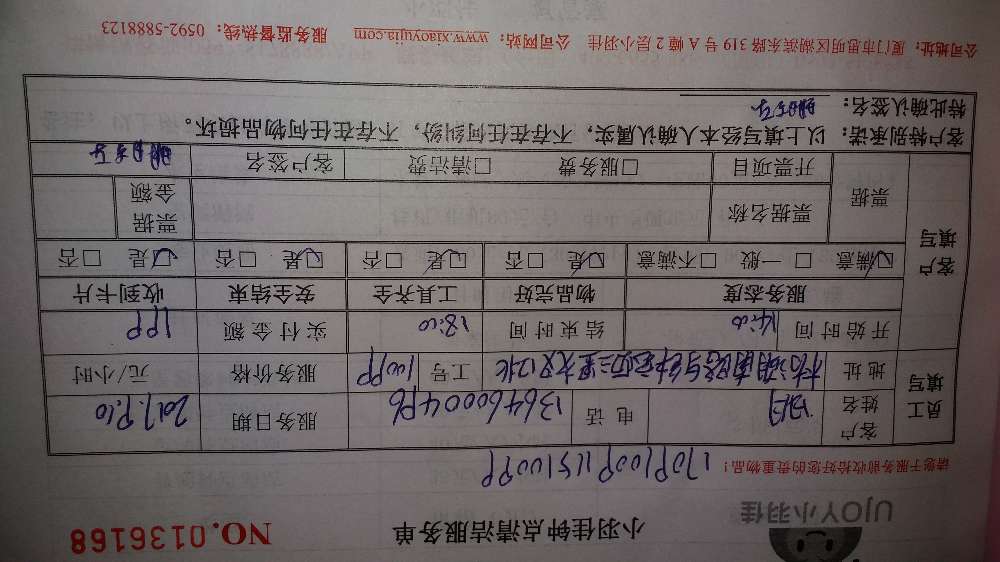 UJOY小羽佳
小羽佳钟点清洁服务单
NO.0136168
请您于服务前收拾好您的贵重物品!
员工填写
客户姓名
电话
服务日期
地址
工号
服务价格
元/小时
开始时间 14:00
结束时间 18:00
实付金额
客户填写
服务态度 物品完好 工具齐全 安全结束 收到卡片
☑满意 □一般 □不满意 ☑是 □否 ☑是 □否 ☑是 □否 ☑是 □否
票据
票据名称
票据金额
开票项目 □服务费 □清洁费 客户签名
客户特别承诺:以上填写经本人确认属实,不存在任何纠纷,不存在任何物品损坏。
特此确认签名:
公司地址:厦门市思明区湖滨东路319号A幢2层小羽佳 公司网站:www.xiaoyujia.com 服务监督热线:0592-5888123